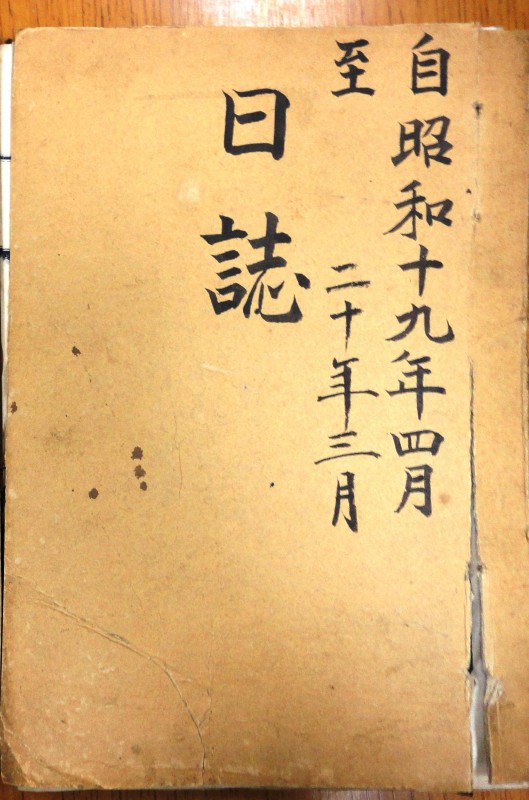 自昭和十九年四月
至二十年三月
日誌